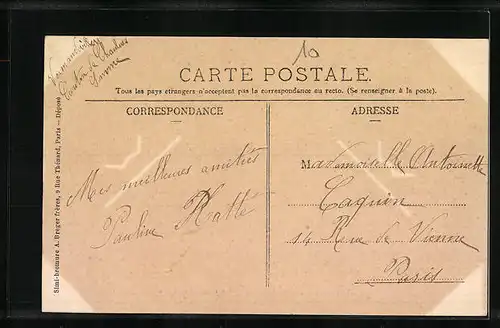 Canton de Chaulnes
Somme
10
CARTE POSTALE.
Tous les pays étrangers n'acceptent pas la correspondance au recto. (Se renseigner à la poste).
CORRESPONDANCE
ADRESSE
Mes meilleures amitiés
Pauline Hatté
Mademoiselle Antoinette
Caquin
Rue de Vienne
Paris
Simi-bromure A. Breger frères, 9 Rue Thénard, Paris — Déposé